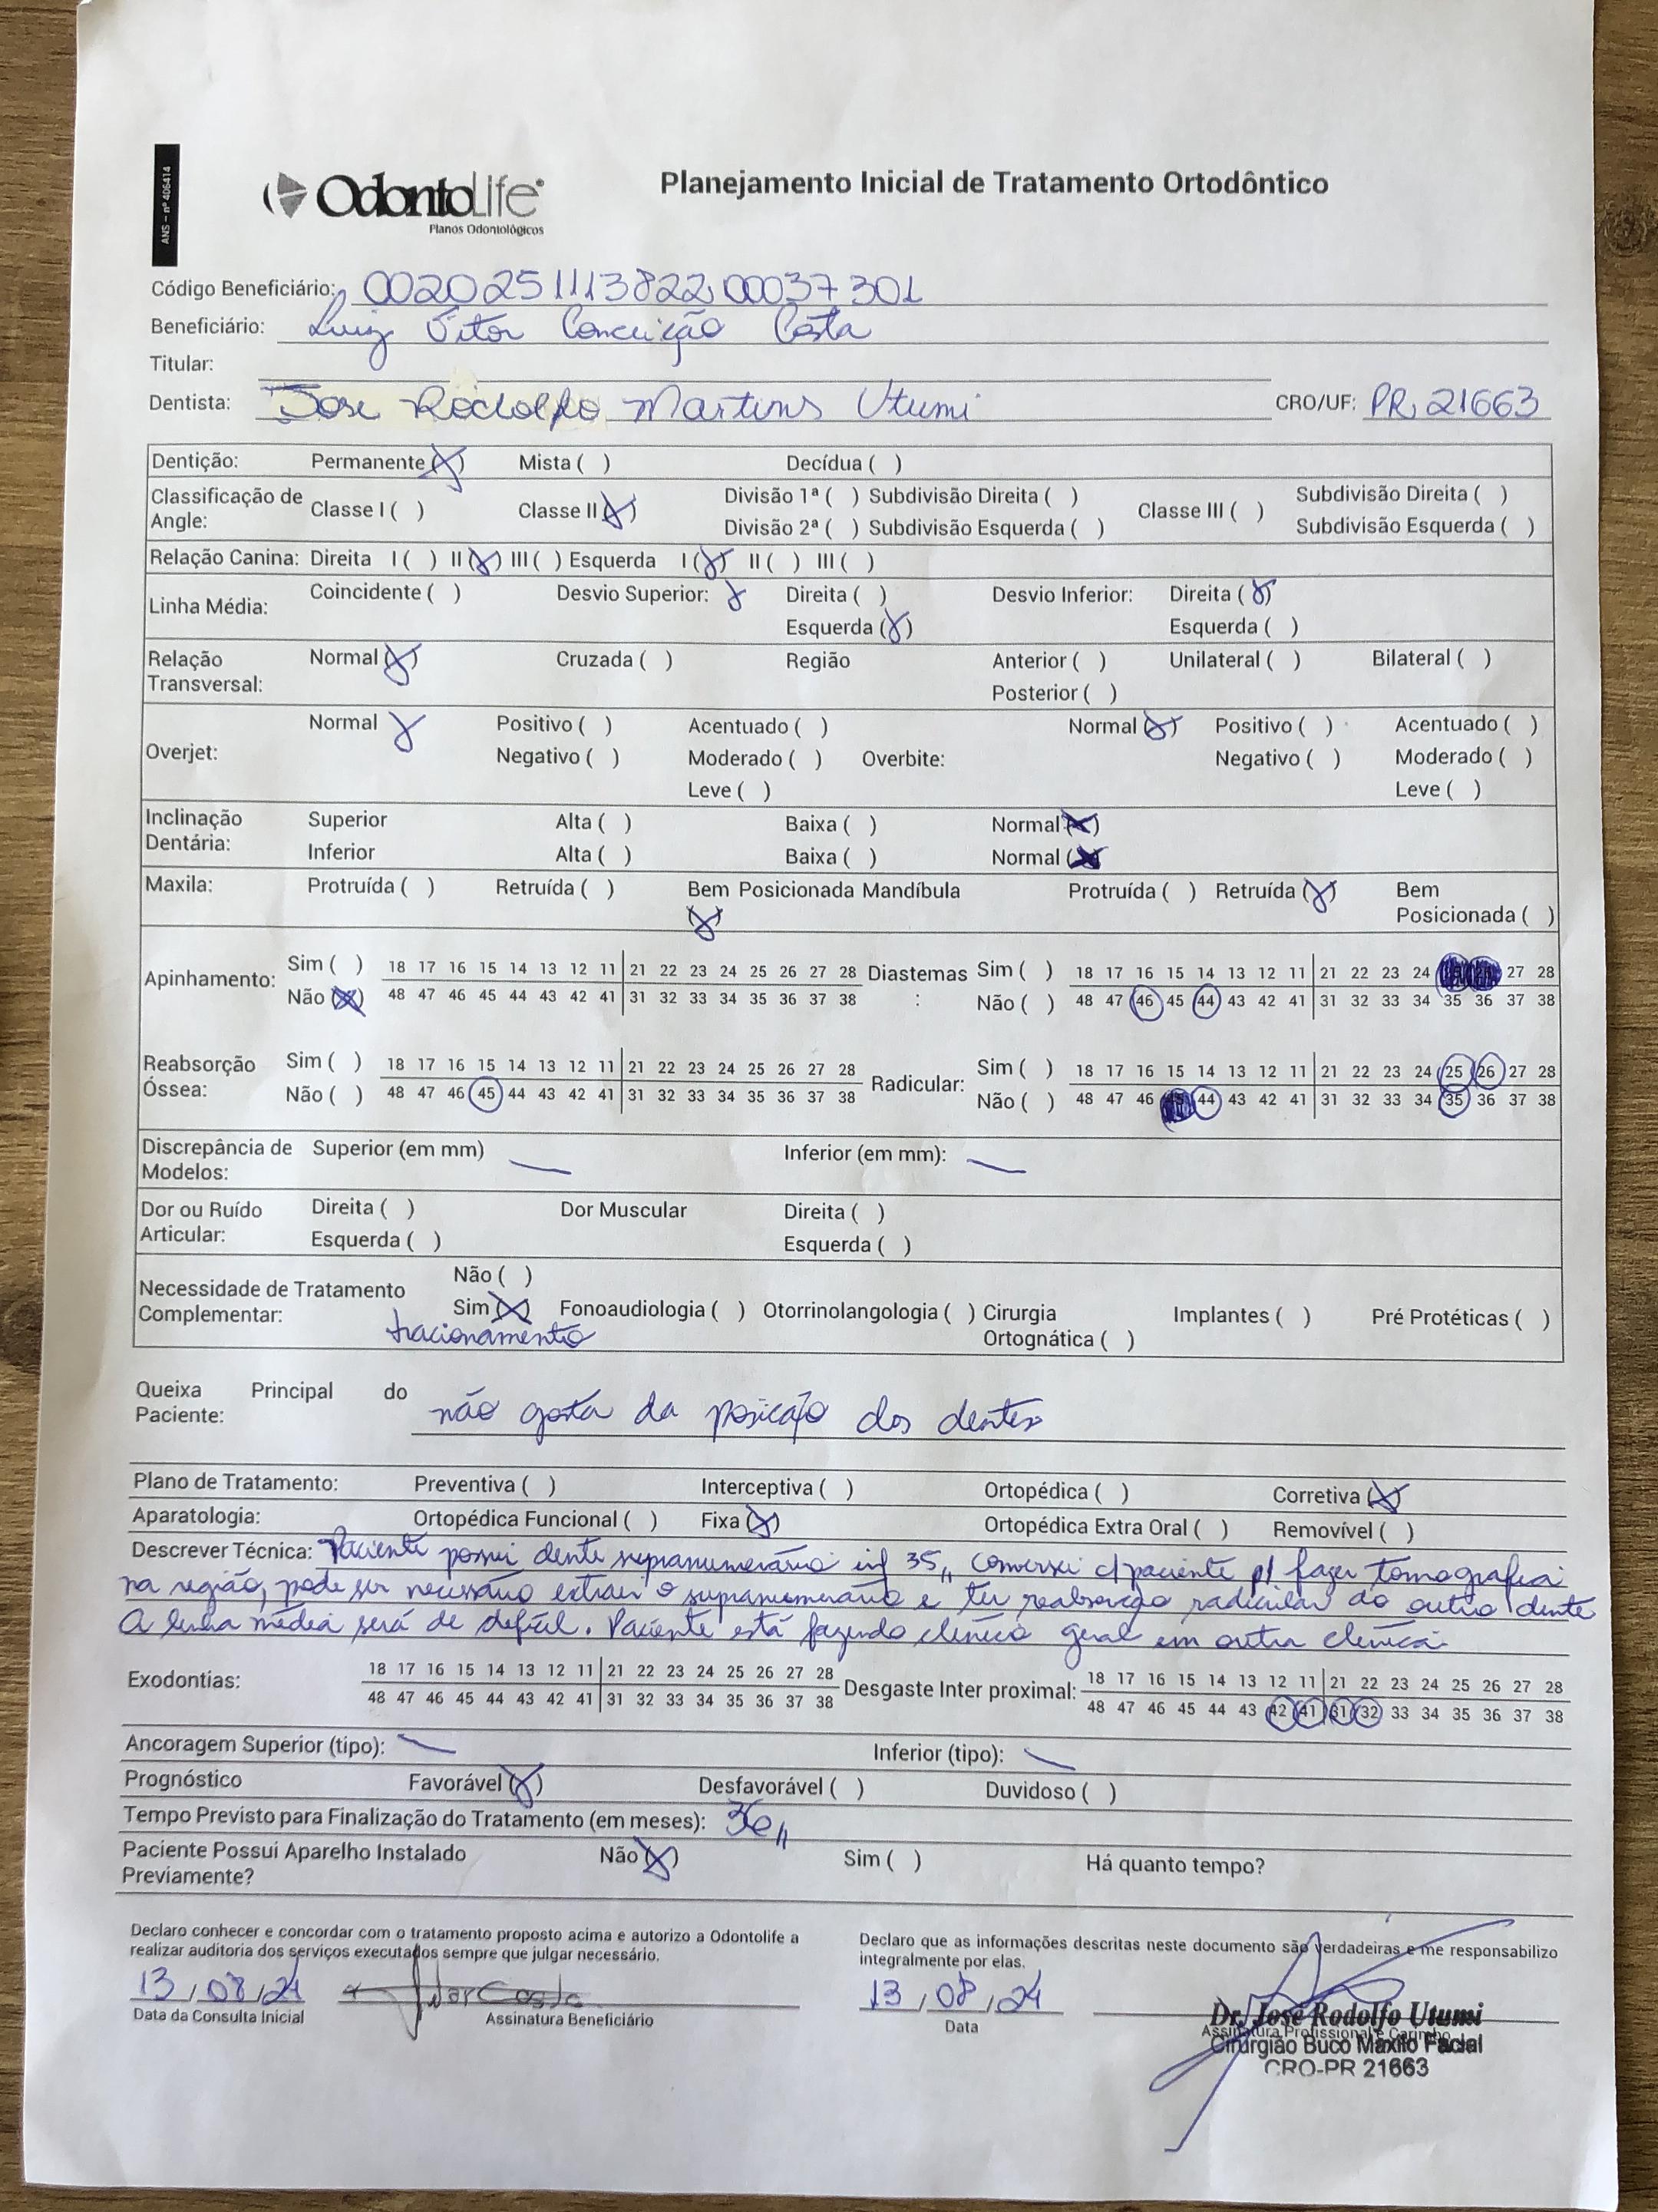 ANS – nº 406414
OdontoLife
Planos Odontológicos
Planejamento Inicial de Tratamento Ortodôntico
Código Beneficiário: 002025111382200037301
Beneficiário: Luiz Vitor Conceição Costa
Titular:
Dentista: Jose Rodolfo Martins Utumi CRO/UF: PR 21663
Dentição: Permanente (X) Mista ( ) Decídua ( )
Classificação de Angle: Classe I ( ) Classe II (X) Divisão 1ª ( ) Subdivisão Direita ( ) Classe III ( ) Subdivisão Direita ( )
Divisão 2ª ( ) Subdivisão Esquerda ( ) Subdivisão Esquerda ( )
Relação Canina: Direita I ( ) II (X) III ( ) Esquerda I (X) II ( ) III ( )
Linha Média: Coincidente ( ) Desvio Superior: X Direita ( ) Desvio Inferior: Direita (X)
Esquerda (X) Esquerda ( )
Relação Transversal: Normal (X) Cruzada ( ) Região Anterior ( ) Unilateral ( ) Bilateral ( )
Posterior ( )
Overjet: Normal X Positivo ( ) Acentuado ( ) Overbite: Normal (X) Positivo ( ) Acentuado ( )
Negativo ( ) Moderado ( ) Negativo ( ) Moderado ( )
Leve ( ) Leve ( )
Inclinação Dentária: Superior Alta ( ) Baixa ( ) Normal (X)
Inferior Alta ( ) Baixa ( ) Normal (X)
Maxila: Protruída ( ) Retruída ( ) Bem Posicionada (X) Mandíbula Protruída ( ) Retruída (X) Bem Posicionada ( )
Apinhamento: Sim ( ) 18 17 16 15 14 13 12 11 21 22 23 24 25 26 27 28 Diastemas : Sim ( ) 18 17 16 15 14 13 12 11 21 22 23 24 27 28
Não (X) 48 47 46 45 44 43 42 41 31 32 33 34 35 36 37 38 Não ( ) 48 47 46 45 44 43 42 41 31 32 33 34 35 36 37 38
Reabsorção Óssea: Sim ( ) 18 17 16 15 14 13 12 11 21 22 23 24 25 26 27 28 Radicular: Sim ( ) 18 17 16 15 14 13 12 11 21 22 23 24 25 26 27 28
Não ( ) 48 47 46 45 44 43 42 41 31 32 33 34 35 36 37 38 Não ( ) 48 47 46 44 43 42 41 31 32 33 34 35 36 37 38
Discrepância de Modelos: Superior (em mm) — Inferior (em mm): —
Dor ou Ruído Articular: Direita ( ) Dor Muscular Direita ( )
Esquerda ( ) Esquerda ( )
Necessidade de Tratamento Complementar: Não ( )
Sim (X) Fonoaudiologia ( ) Otorrinolangologia ( ) Cirurgia Ortognática ( ) Implantes ( ) Pré Protéticas ( )
tracionamento
Queixa Principal do Paciente: não gosta da posição dos dentes
Plano de Tratamento: Preventiva ( ) Interceptiva ( ) Ortopédica ( ) Corretiva (X)
Aparatologia: Ortopédica Funcional ( ) Fixa (X) Ortopédica Extra Oral ( ) Removível ( )
Descrever Técnica: Paciente possui dente supranumerário inf 35,, conversei c/ paciente p/ fazer tomografia
na região, pode ser necessário extrair o supranumerário e ter reabsorção radicular do outro dente
A linha média será de difícil. Paciente está fazendo clínico geral em outra clínica
Exodontias: 18 17 16 15 14 13 12 11 21 22 23 24 25 26 27 28 Desgaste Inter proximal: 18 17 16 15 14 13 12 11 21 22 23 24 25 26 27 28
48 47 46 45 44 43 42 41 31 32 33 34 35 36 37 38 48 47 46 45 44 43 42 41 31 32 33 34 35 36 37 38
Ancoragem Superior (tipo): — Inferior (tipo): —
Prognóstico Favorável (X) Desfavorável ( ) Duvidoso ( )
Tempo Previsto para Finalização do Tratamento (em meses): 36,,
Paciente Possui Aparelho Instalado Previamente? Não (X) Sim ( ) Há quanto tempo?
Declaro conhecer e concordar com o tratamento proposto acima e autorizo a Odontolife a
realizar auditoria dos serviços executados sempre que julgar necessário.
Declaro que as informações descritas neste documento são verdadeiras e me responsabilizo
integralmente por elas.
13/08/24 Vitor Costa 13/08/24
Data da Consulta Inicial Assinatura Beneficiário Data Assinatura Profissional e Carimbo
Dr. José Rodolfo Utumi
Cirurgião Buco Maxilo Facial
CRO-PR 21663